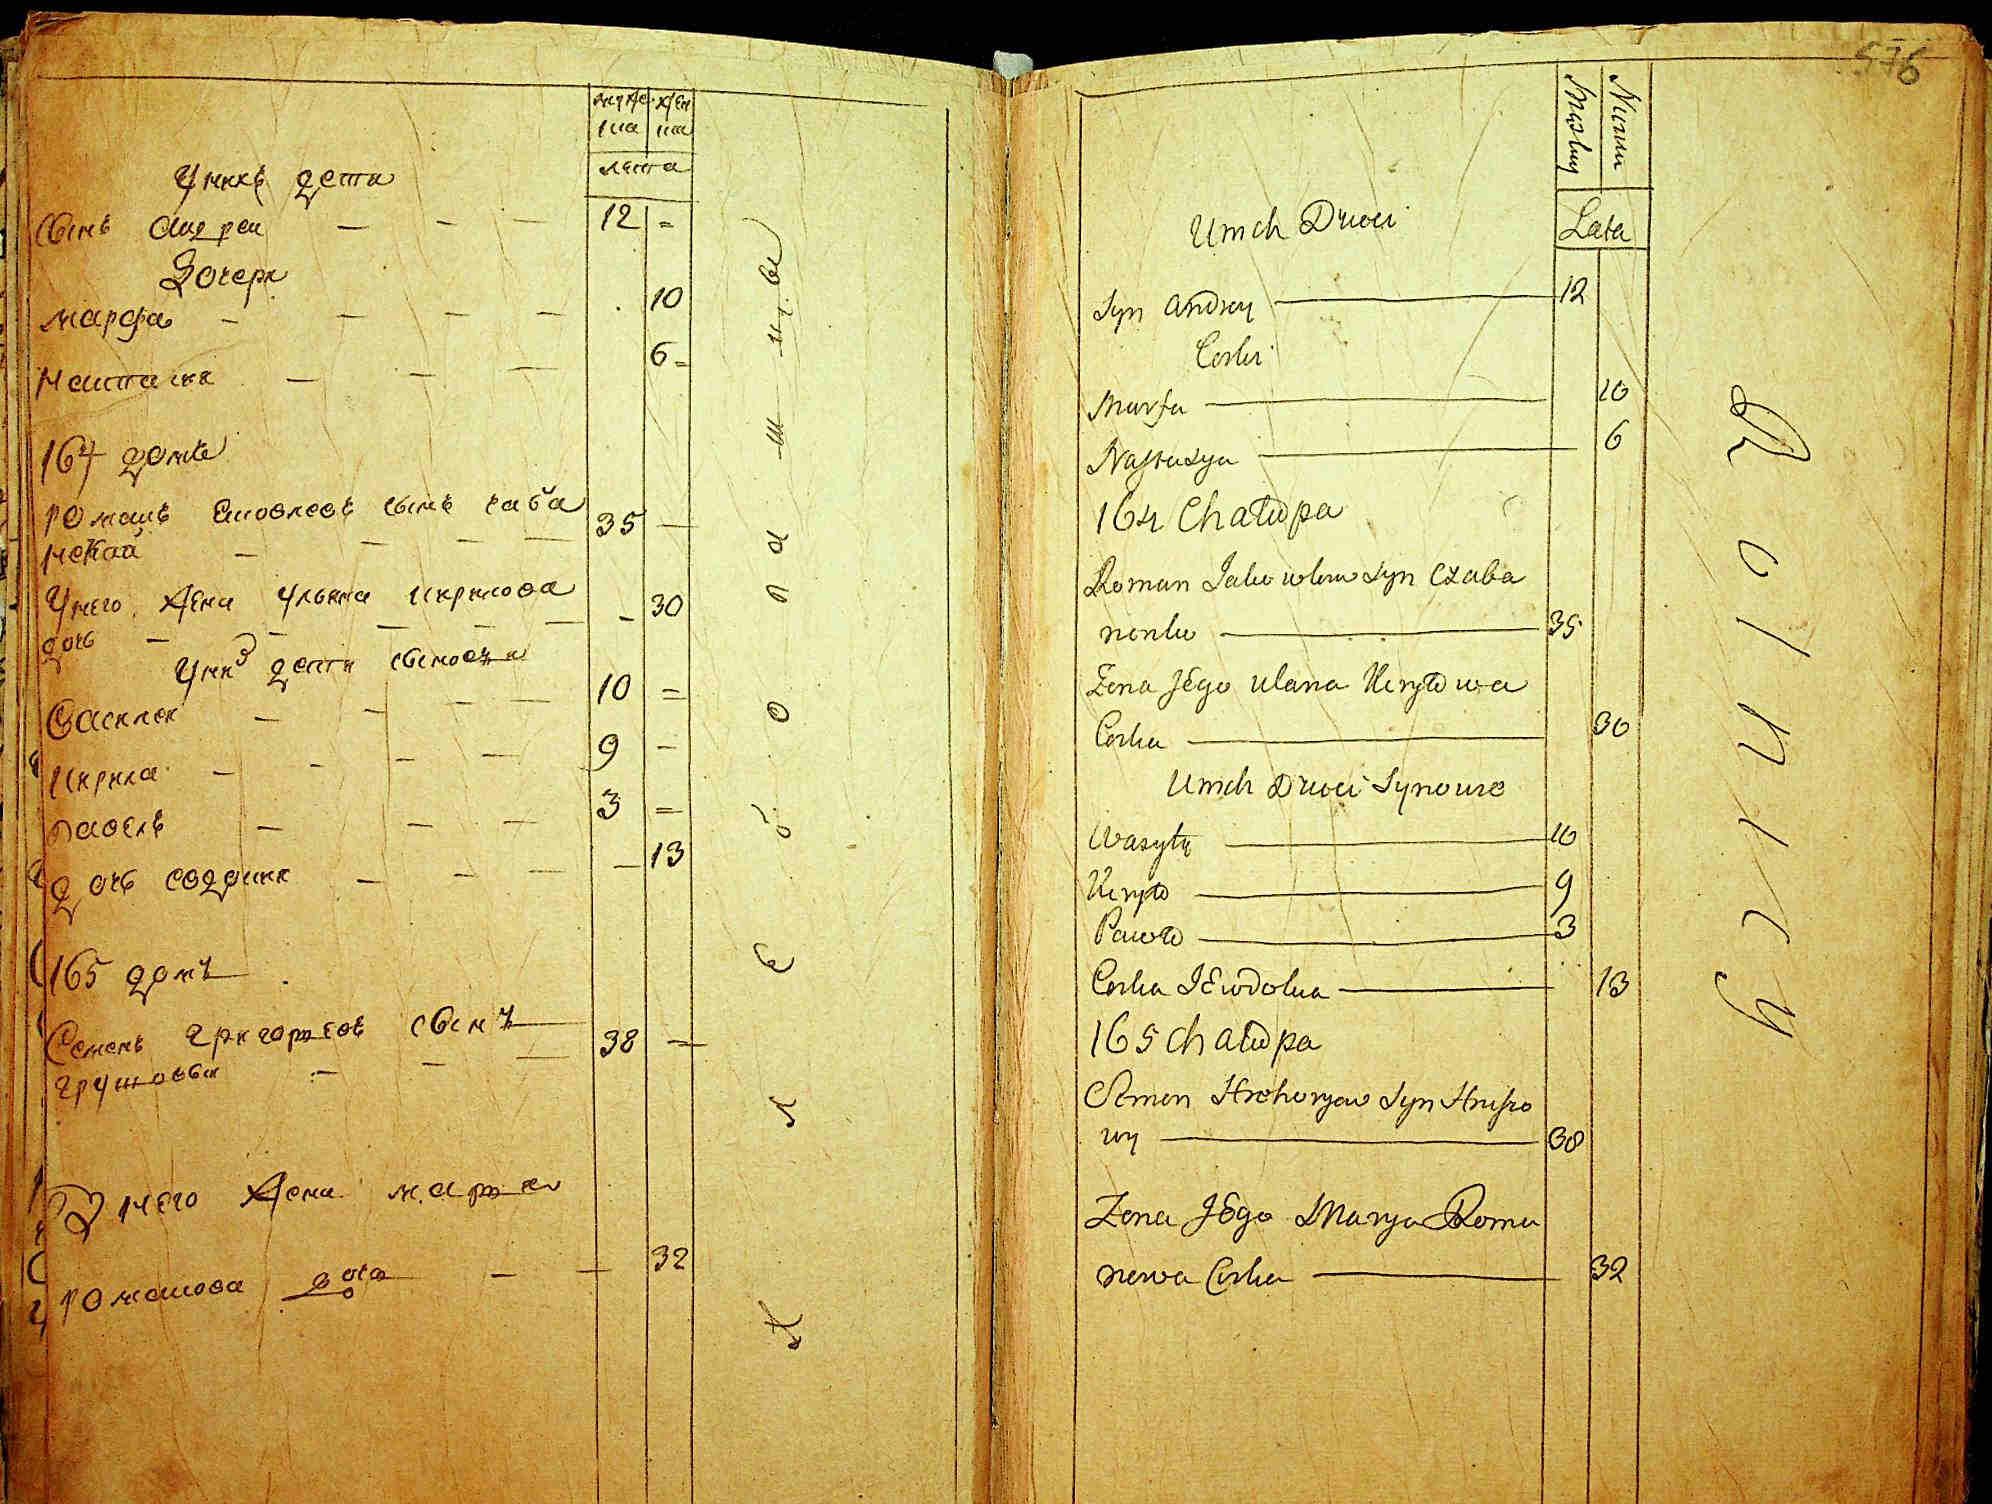 мужеска
женска
лета
У нихъ дети
сынъ андреи — — — 12 =
Дочери
марфа — — — — 10
настасия — — — 6 =
164 домъ
романъ яковлевъ сынъ чаба
ненкой — — — — 35 —
У него жена ульяна кирилова
дочь — — — — — 30
У них дети сыновья
Василеи — — — — 10 =
кирила — — — — 9 –
павелъ — — — 3 =
дочь евдокия — — — — 13
165 домъ
Семенъ григорьевъ сынъ
грушовыи — — — 38 —
У него жена марья
романова дочь — — 32
хлебопашцы
576
Mascul
Numer
Lata
Umch Dzieci
Syn Andrey — 12
Corki
Marfa — 10
Nastasya — 6
164 Chałupa
Roman Jakowlew Syn Czaba
nenko — 35
Zona Jego Ulana Kiryłowa
Corka — 30
Umch Dzieci Synowie
Wasyly — 10
Kiryło — 9
Pawło — 3
Corka Jewdokia — 13
165 Chałupa
Semen Hrehoryew Syn Hruszo
wy — 38
Zona Jego Marya Roma
nowa Corka — 32
Rolnicy